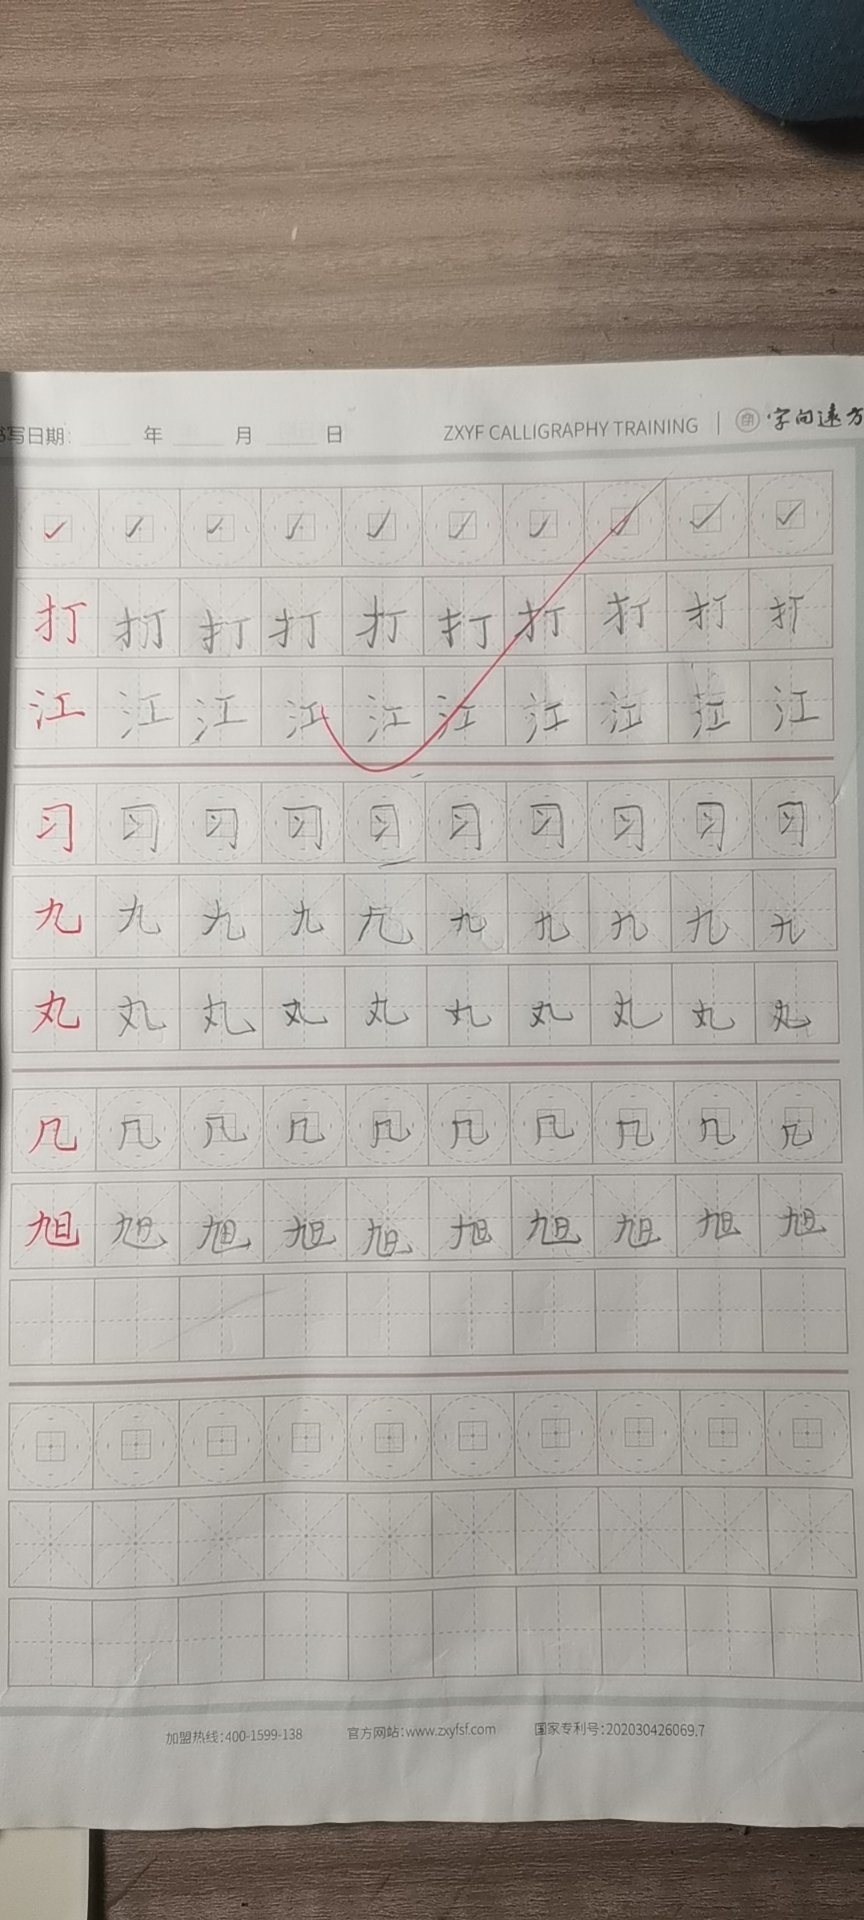 书写日期: 年 月 日 ZXYF CALLIGRAPHY TRAINING | 字间远方
打 打 打 打 打 打 打 打 打 打
江 江 江 江 江 江 江 江 江 江
习 习 习 习 习 习 习 习 习 习
九 九 九 九 九 九 九 九 九 九
丸 丸 丸 丸 丸 丸 丸 丸 丸 丸
几 几 几 几 几 几 几 几 几 几
旭 旭 旭 旭 旭 旭 旭 旭 旭 旭
加盟热线:400-1599-138 官方网站:www.zxyfsf.com 国家专利号:202030426069.7